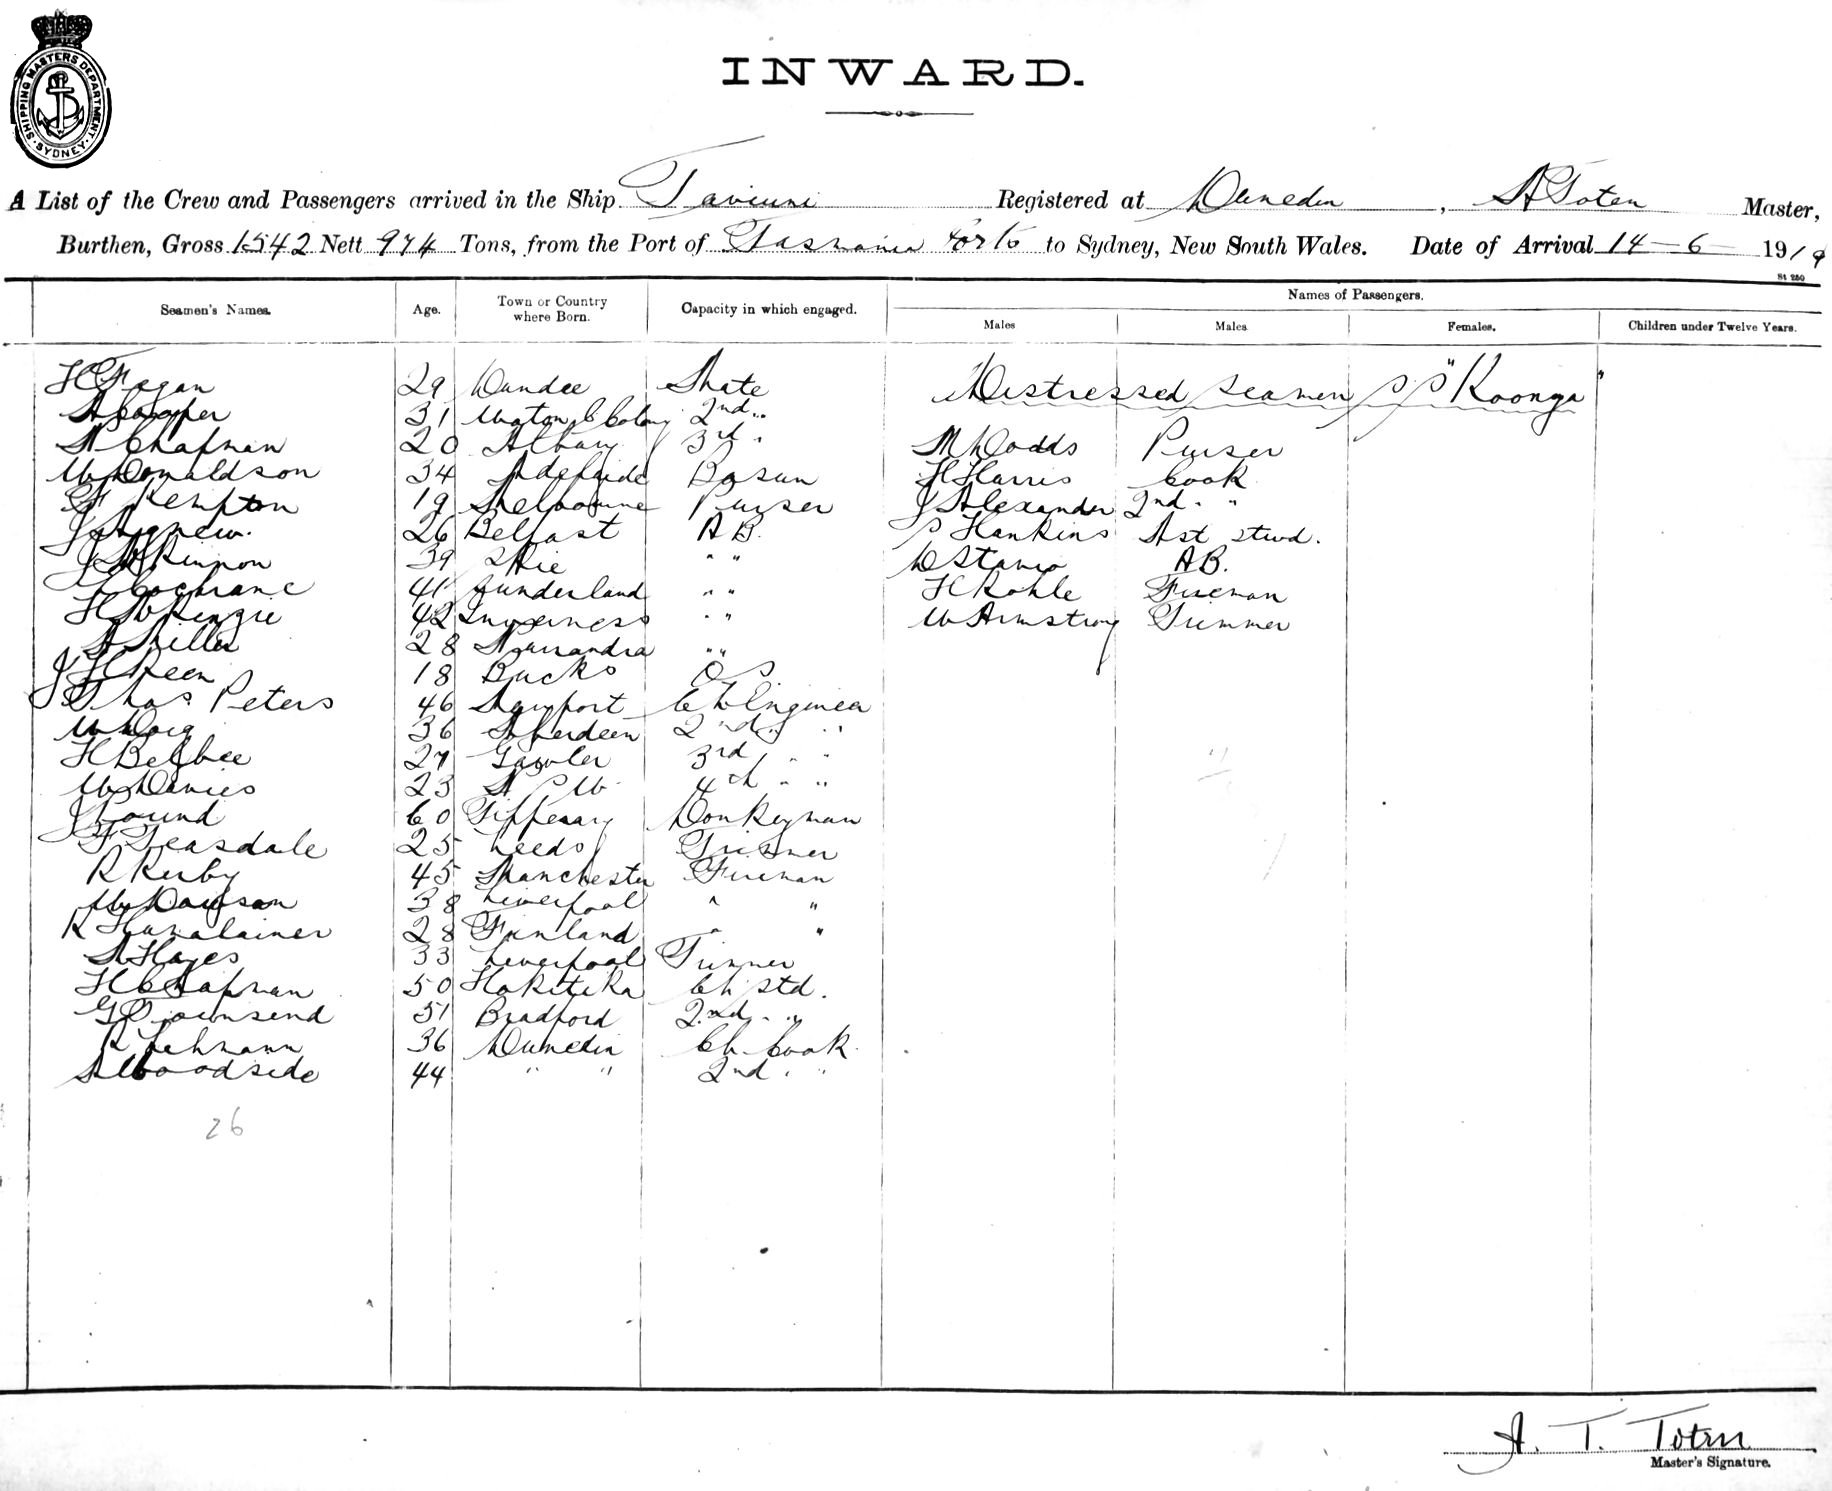 SHIPPING MASTERS DEPARTMENT
SYDNEY
INWARD.
A List of the Crew and Passengers arrived in the Ship Taviuni Registered at Dunedin, A Toten Master,
Burthen, Gross 1542 Nett 974 Tons, from the Port of Tasmania Ports to Sydney, New South Wales. Date of Arrival 14-6-1919
St 250
Seamen's Names. Age. Town or Country where Born. Capacity in which engaged. Names of Passengers.
Males Males Females. Children under Twelve Years.
H Fagan 29 Dundee Mate
Distressed Seamen SS "Koonga"
A Cooper 31 31 2nd "
A Chapman 20 Albany 3rd "
M Dodds Purser
W Donaldson 34 Adelaide Bosun
H Harris Cook
F Kempton 19 Melbourne Purser
J Alexander 2nd " "
J Agnew. 26 Belfast AB.
S Hankins Ast stwd.
J McKinnon 39 " "
D AB.
Cochrane 41 Sunderland " "
H Kohle Fireman
H McKenzie 42 Inverness " "
W Armstrong Trimmer
A Miller 28 " "
J H Keen 18 Bucks OS
Thos Peters 46 Ch Engineer
W Doig 36 Aberdeen 2nd " "
H Belbee 27 Gawler 3rd " "
W Davies 23 N S W 4th " "
J Lound 60 Tipperary Donkeyman
F Teasdale 25 Leeds Trimmer
R Kerby 45 Manchester Fireman
W Dawson 38 Liverpool " "
K 28 Finland " "
A Hayes 33 Liverpool Trimmer
H Chapman 50 Hokitika Ch Std.
G Townsend 51 Bradford 2nd " "
R Lehmann 36 Dunedin Ch Cook
A Woodside 44 " " 2nd " "
26
A. T. Toten
Master's Signature.